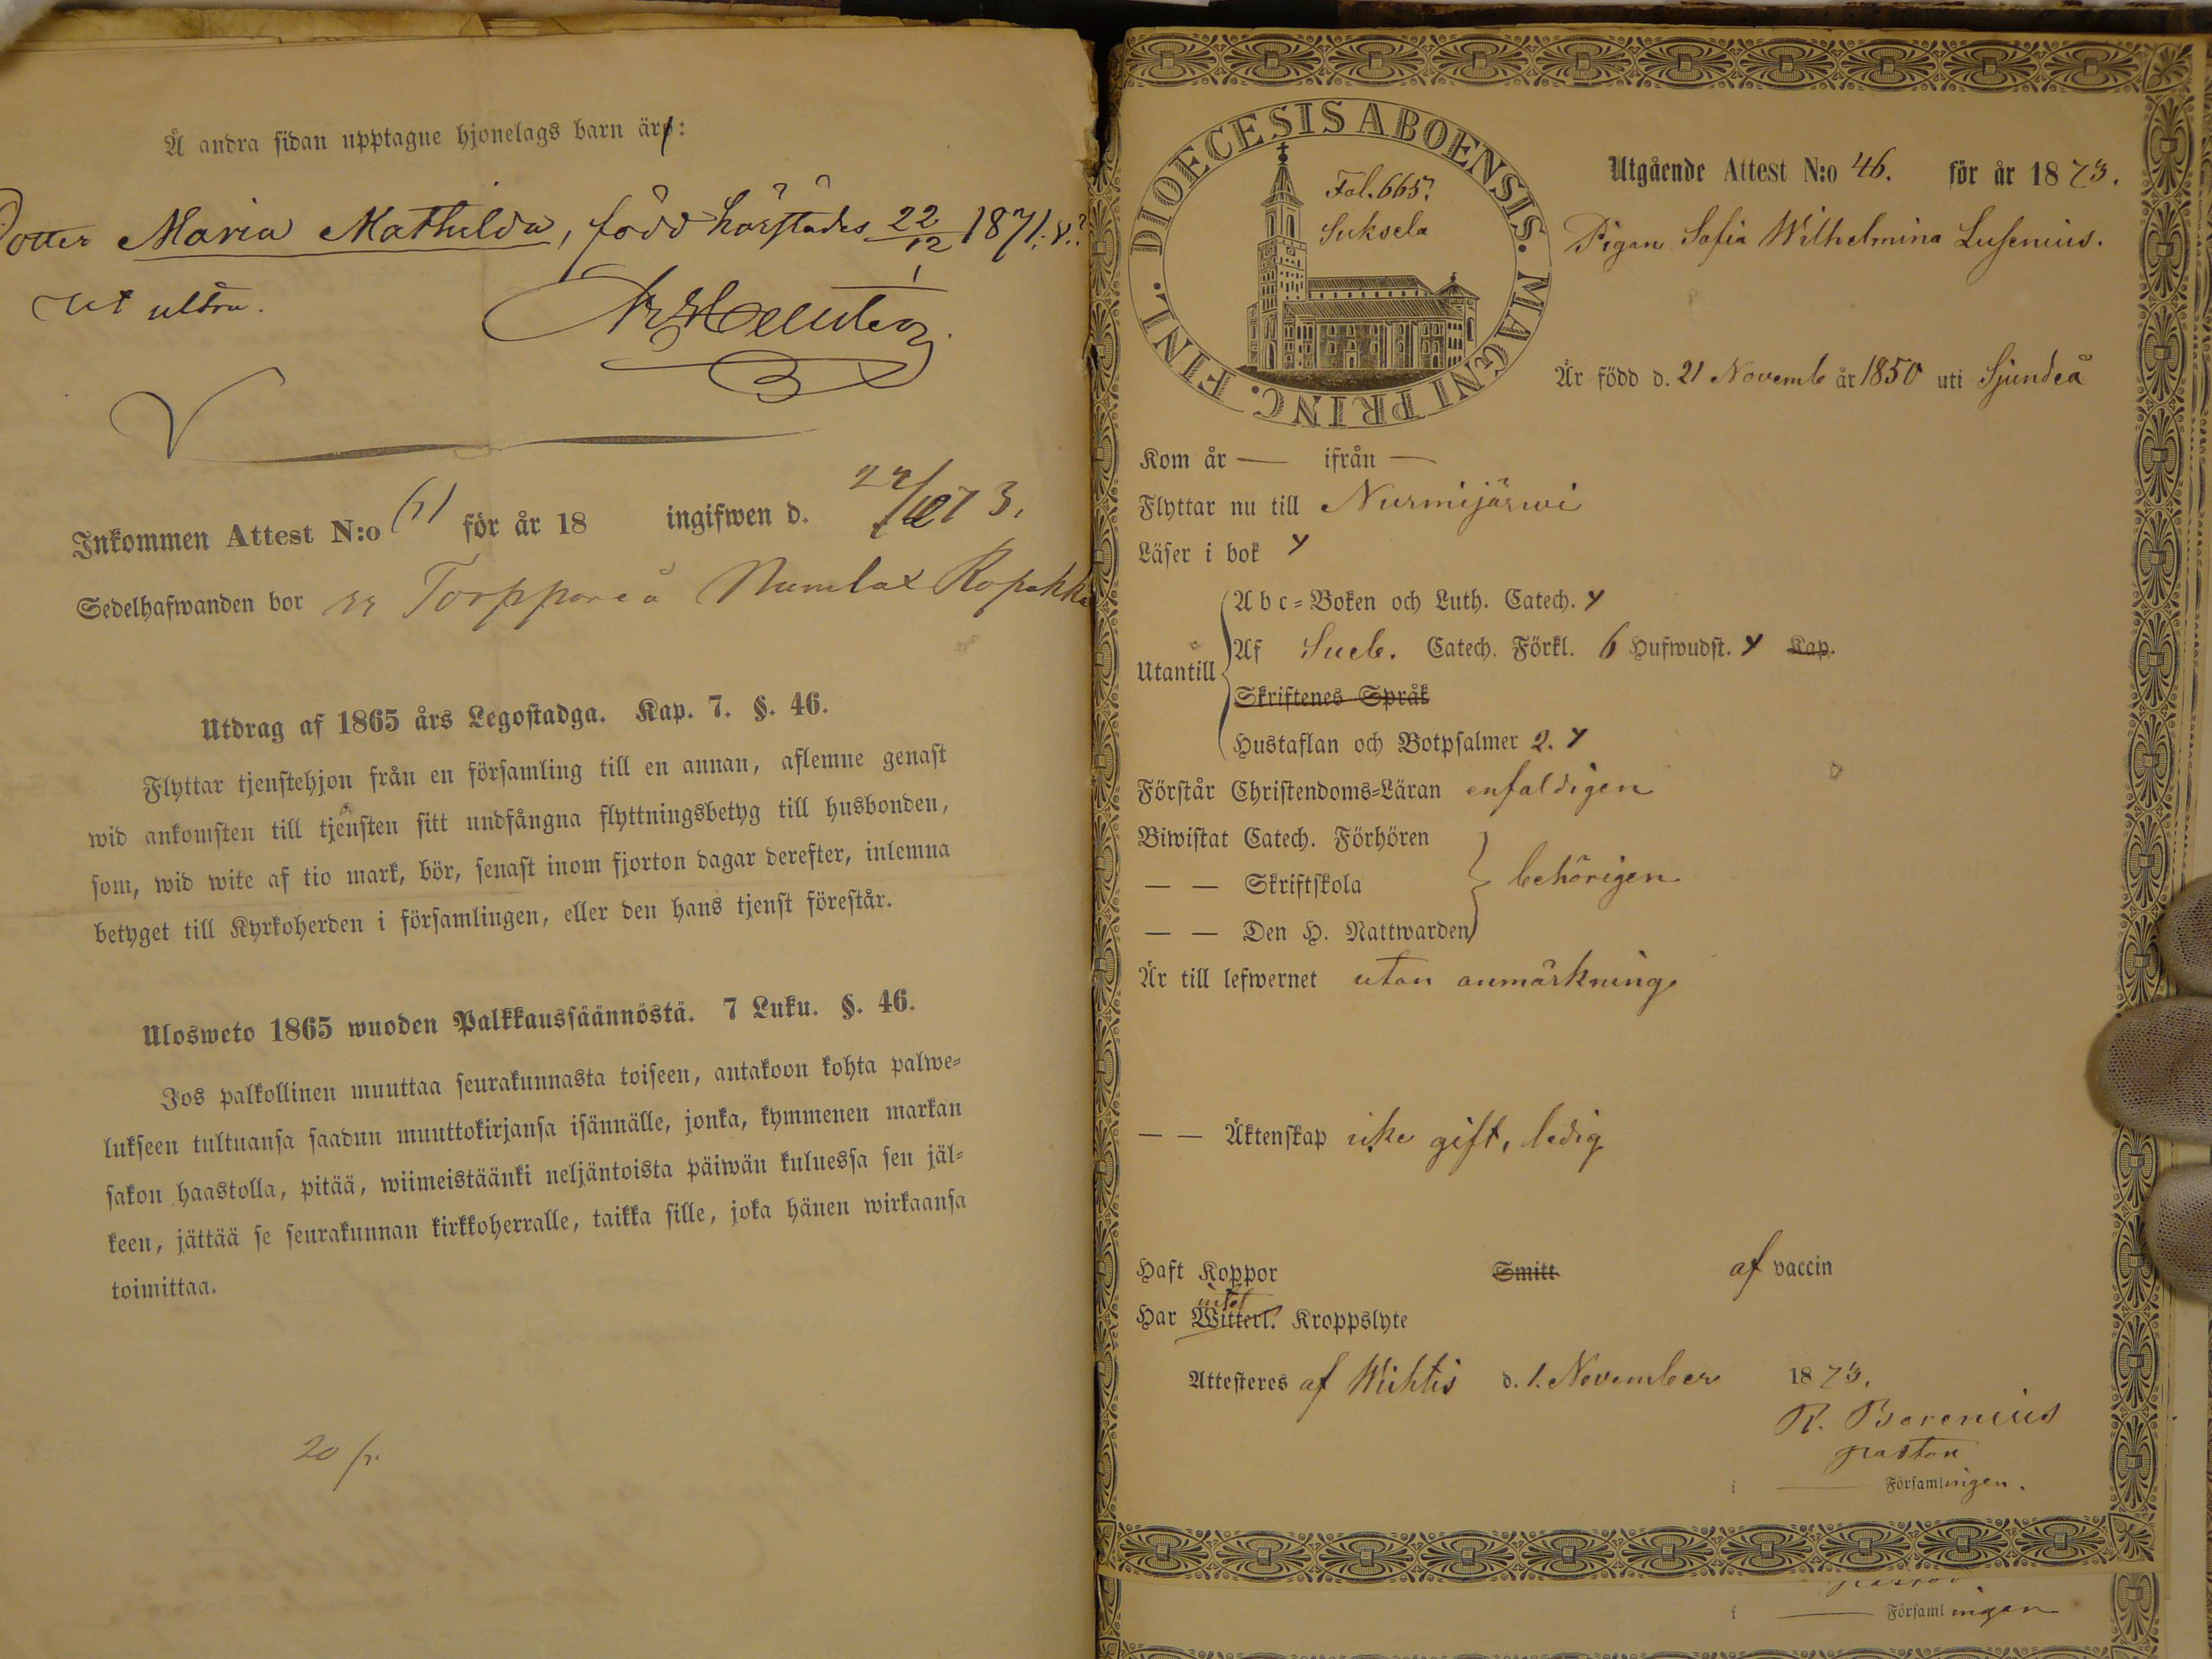 Å andra sidan upptagne hjonelags barn är:
Dotter Maria Mathilda, född härstädes 22/12 1871. v.
ut ultra.
Inkommen Attest N:o 61 för år 18 ingifwen d. 1873.
Sedelhafwanden bor Torppare å Numlax
Utdrag af 1865 års Legostadga. Kap. 7. §. 46.
Flyttar tjenstehjon från en församling till en annan, aflemne genast
wid ankomsten till tjensten sitt undfångna flyttningsbetyg till husbonden,
som, wid wite af tio mark, bör, senast inom fjorton dagar derefter, inlemna
betyget till Kyrkoherden i församlingen, eller den hans tjenst förestår.
Ulosweto 1865 wuoden Palkkaussäännöstä. 7 Luku. §. 46.
Jos palkollinen muuttaa seurakunnasta toiseen, antakoon kohta palwe-
lukseen tultuansa saadun muuttokirjansa isännälle, jonka, kymmenen markan
sakon haastolla, pitää, wiimeistäänki neljäntoista päiwän kuluessa sen jäl-
keen, jättää se seurakunnan kirkkoherralle, taikka sille, joka hänen wirkaansa
toimittaa.
20 p.
DIOECESIS ABOENSIS. MAGNI PRINC. FINL.
Fol. 665.
Suksela
Utgående Attest N:o 46. för år 1873.
Pigan Sofia Wilhelmina Lusenius.
Är född d. 21 Novemb år 1850 uti Sjundeå
Kom år — ifrån —
Flyttar nu till Nurmijärwi
Läser i bok y
Utantill
A b c-Boken och Luth. Catech. y
Af Sveb. Catech. Förkl. 6 Hufwudst. y Kap.
Skriftenes Språk
Hustaflan och Botpsalmer 2. y
Förstår Christendoms-Läran enfaldigen
Biwistat Catech. Förhören
— — Skriftskola behörigen
— — Den H. Nattwarden
Är till lefwernet utan anmärkning
— — Äktenskap icke gift, ledig
Haft Koppor Smitt af vaccin
intet
Har Witterl. Kroppslyte
Attesteres af Wichtis d. 1. November 1873.
R. Borenius
pastor
i — Församlingen.
pastor
i — Församlingen